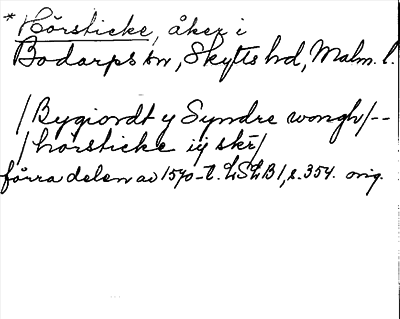 * Hörsticke, åker i
Bodarps sn, Skytts hd, Malm. l.
/Bygiordt y Syndre wongh/--
/hörsticke iij skr̄/
förra delen av 1570-t. LSLB1, s. 354. orig.